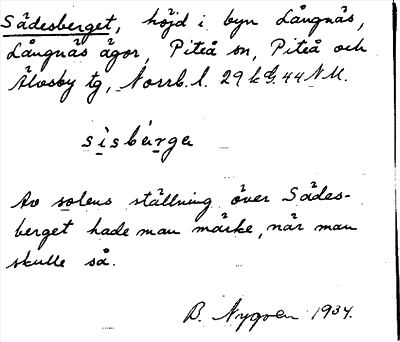 Sädesberget, höjd i byn Långnäs,
Långnäs ägor, Piteå sn, Piteå och
Älvsby tg, Norrb. l. 29 k G. 44 N M.
sìsbàrga
Av solens ställning över Sädes-
berget hade man märke, när man
skulle så.
B. Nygren 1934.